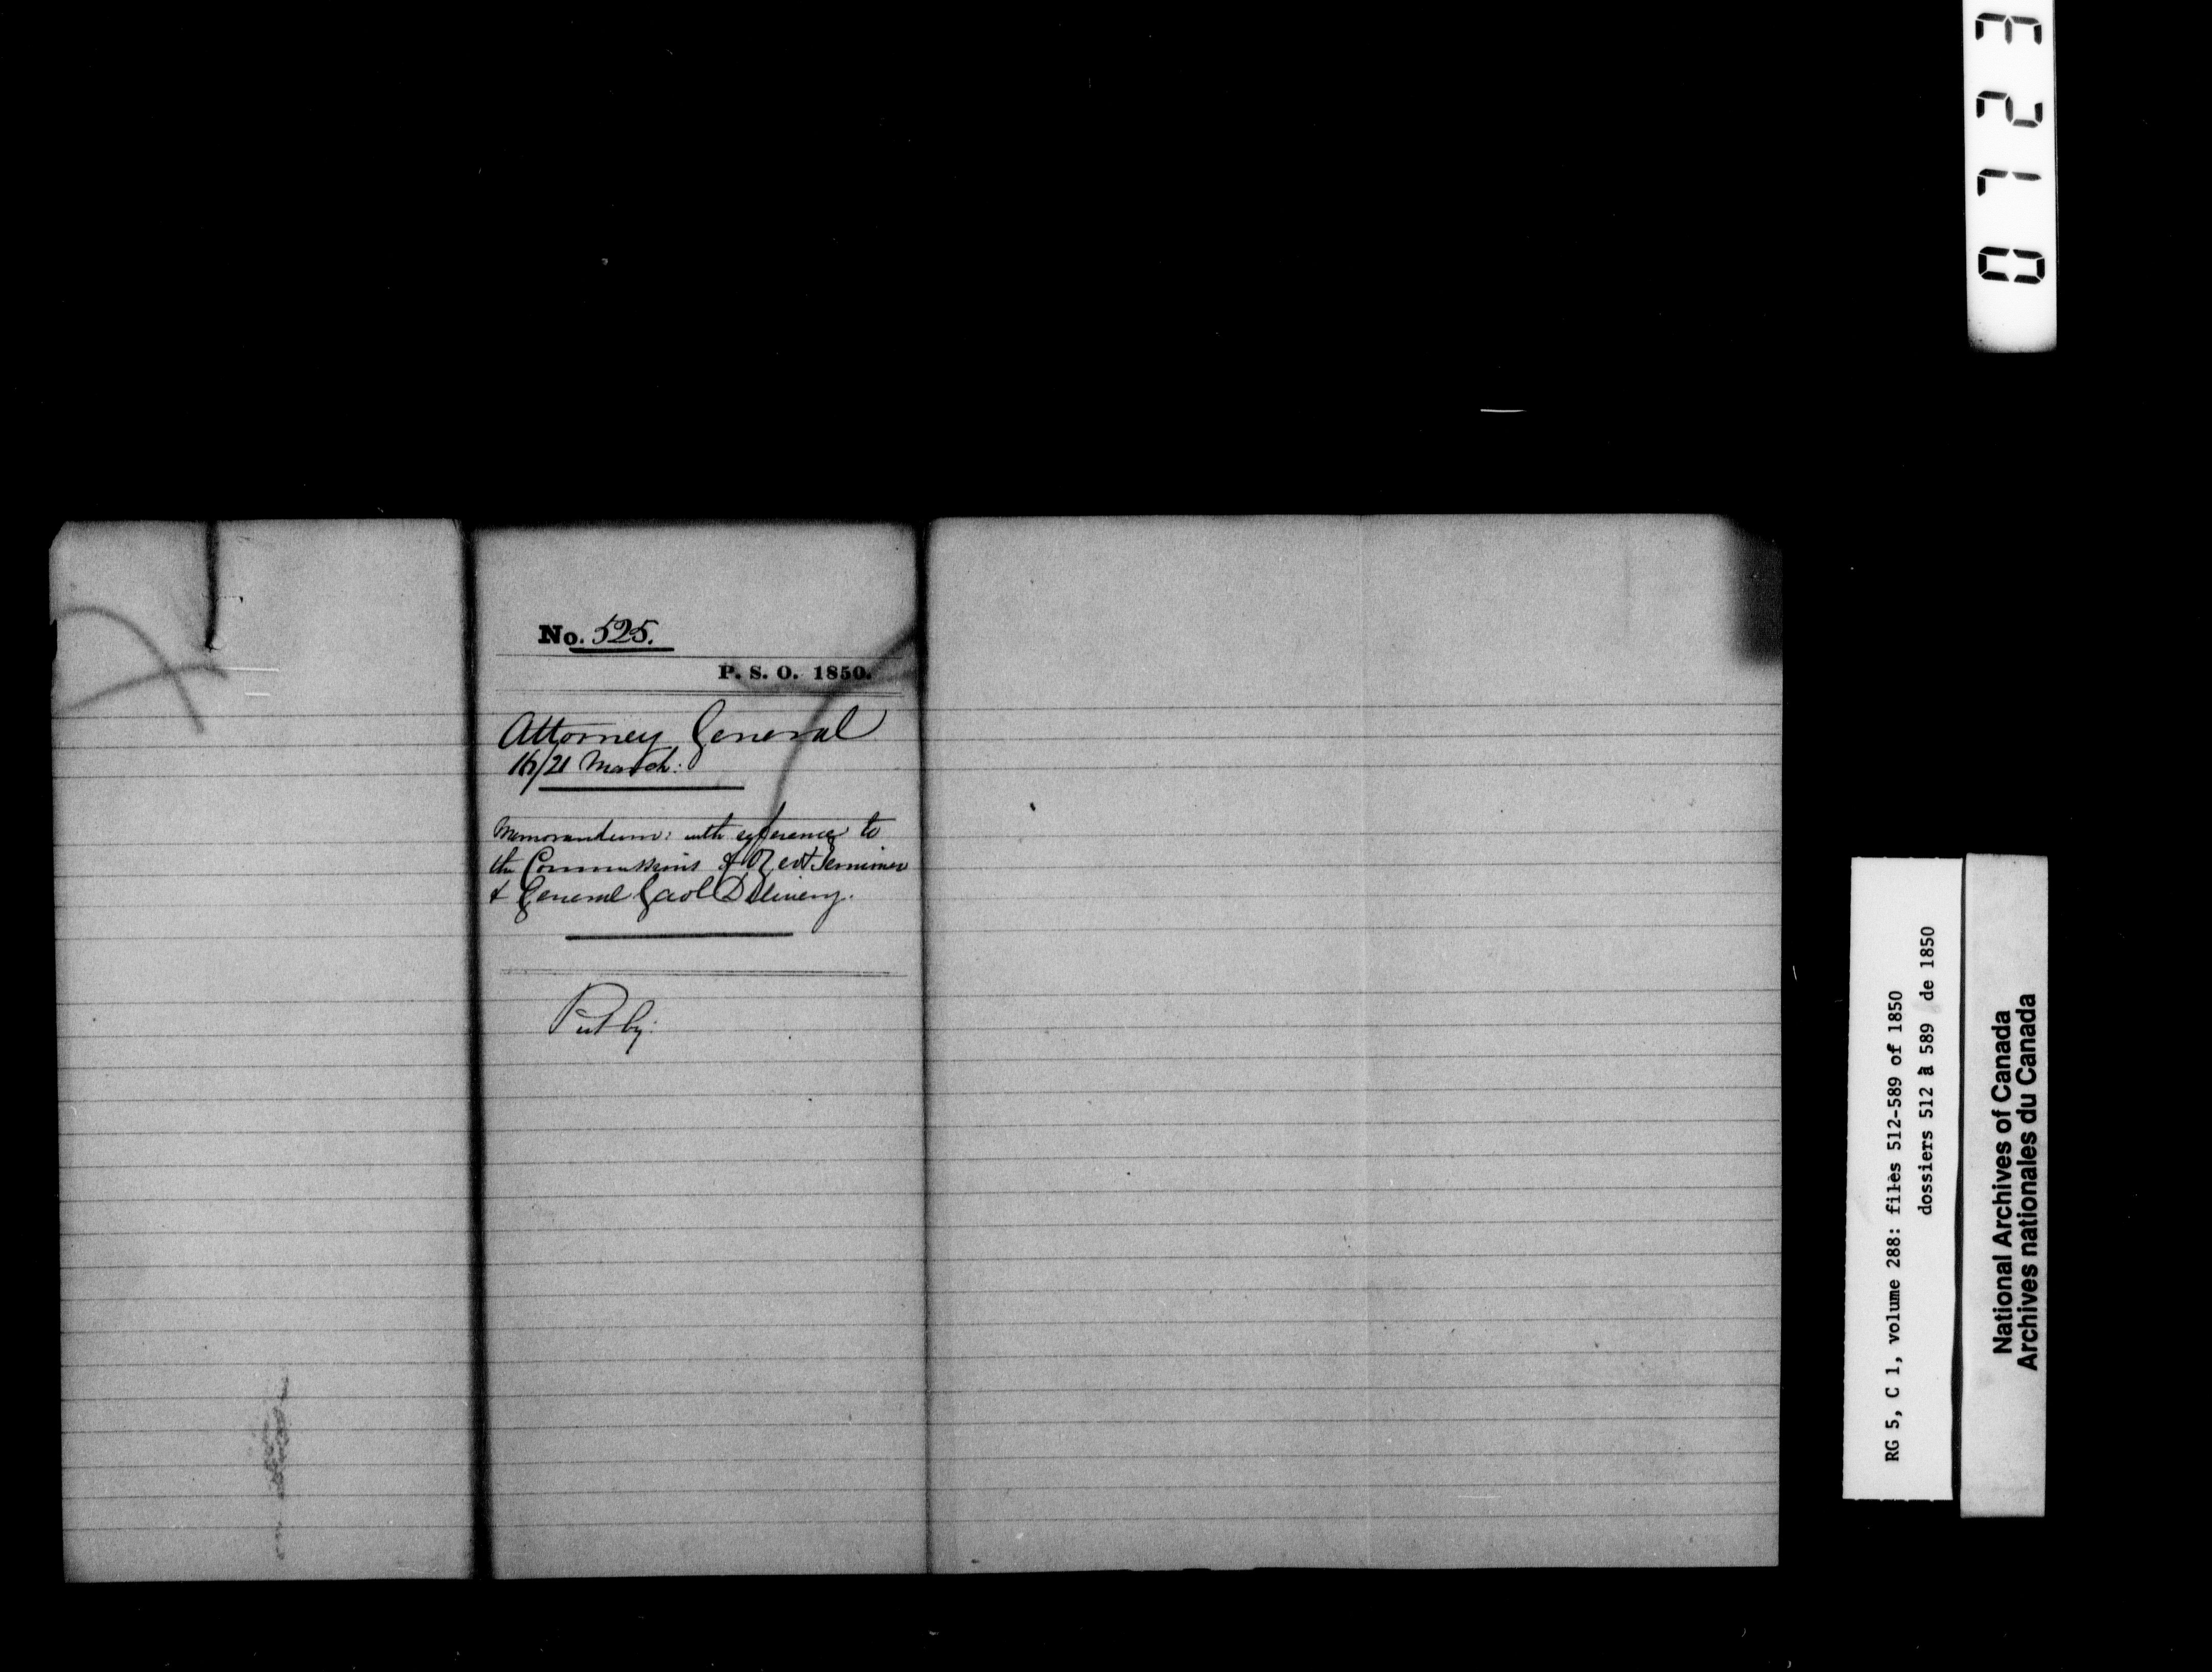 No. 525.
P. S. O. 1850.
Attorney General
16/21 March:
Memorandum: with reference to
the Commissions of Oyer et Terminer
& General Gaol Delivery.
Put by:
0723
RG 5, C 1, volume 288: files 512-589 of 1850
dossiers 512 à 589 de 1850
National Archives of Canada
Archives nationales du Canada